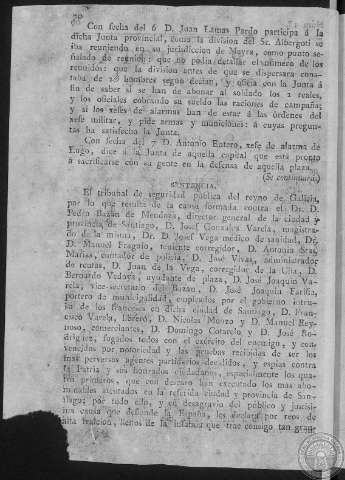 Con fecha del 6 D. Juan Lamas Pardo participa á la
dicha Junta provincial, como la division del Sr. Albergoti se
iba reuniendo en su jurisdiccion de Meyra, como punto se-
ñalado de reunion: que no podia detallar el número de los
reunidos: que la division antes de que se dispersara cons-
taba de hombres segun decian, y oficia con la Junta á
fin de saber si se han de abonar al soldado los 2 reales,
y los oficiales cobrando su sueldo las raciones de campaña;
y si los xefes de alarmas han de estar á las órdenes del
xefe militar, y pide armas y municiones: á cuyas pregun-
tas ha satisfecho la Junta.
Con fecha del 7 D. Antonio Entero, xefe de alarma de
Lugo, dice á la Junta de aquella capital que está pronto
á sacrificarse con su gente en la defensa de aquella plaza.
(Se continuará)
SENTENCIA.
El tribunal de seguridad pública del reyno de Galicia,
por lo que resulta de la causa formada contra el Dr. D.
Pedro Bazan de Mendoza, director general de la ciudad y
provincia de Santiago, D. Josef Gonzalez Varela, magistra-
do de la misma, D. Josef Vega médico de sanidad, Dr.
D. Manuel Fraguío, teniente corregidor, D. Antonio Sras
Mariñas, contador de policía, D. José Vivas, administrador
de rentas, D. Juan de la Vega, corregidor de la Ulla, D.
Bernardo Vedoya, ayudante de plaza, D. José Joaquin Va-
rela, vice-secretario del Bazan, D. José Joaquin Fariña,
portero de municipalidad, empleados por el gobierno intru-
so de los franceses en dicha ciudad de Santiago, D. Fran-
cisco Varela, librero, D. Nicolas Monzo y D. Manuel Rey-
noso, comerciantes, D. Domingo Cotarelo y D. José Ro-
driguez, fugados todos con el exército del enemigo, y con-
vencidos por notoriedad y las pruebas recibidas de ser los
mas perversos agentes partidarios decididos, y espías contra
la Patria y sus honrados ciudadanos, especialmente los qua-
tro primeros, que con descaro han executado los mas abo-
minables atentados en la referida ciudad y provincia de San-
tiago; por todo ello, y en desagravio del público y justísi-
ma causa que defiende la España, los declara por reos de
alta traicion, llenos de la infamia que trae consigo tan gran